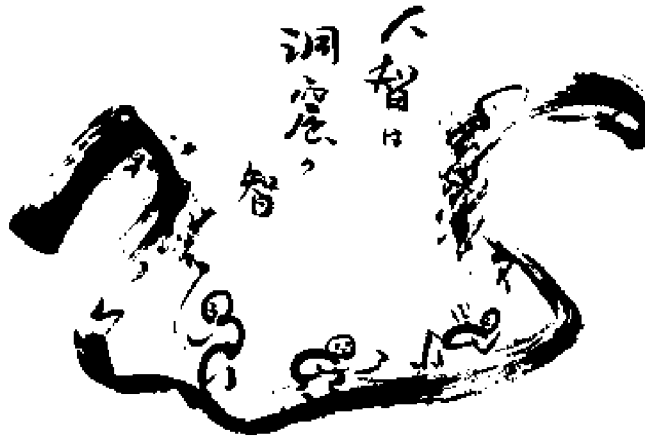 人智は
洞窟の
智